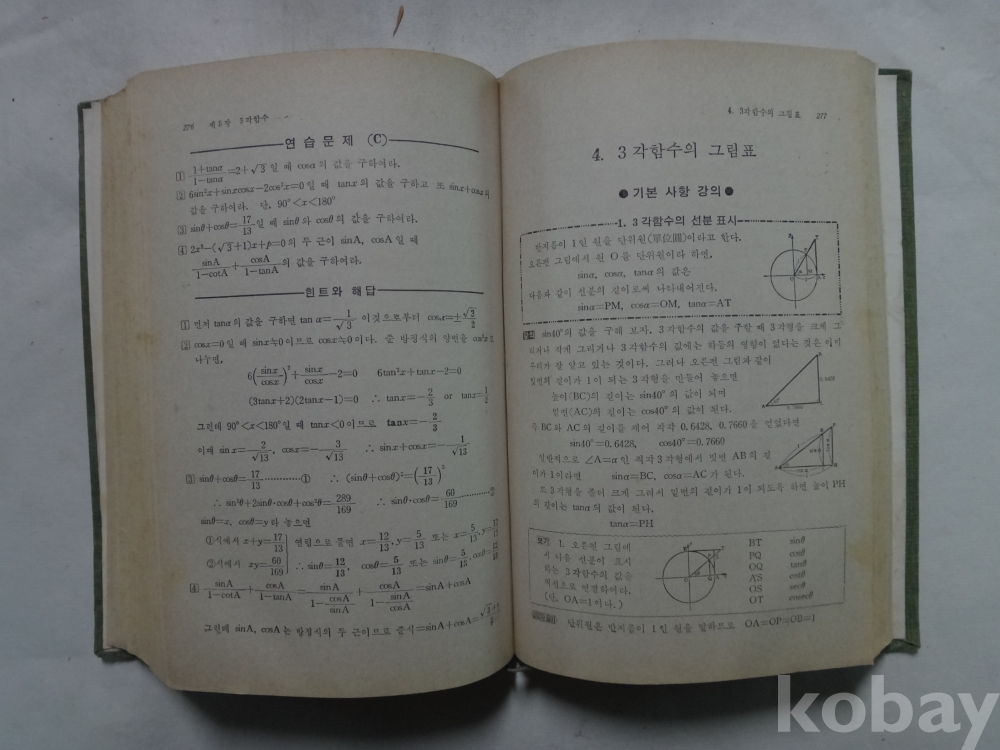 276 제3장 3각함수
연 습 문 제 (C)
1 (1+tanα)/(1−tanα)=2+√3일 때 cosα의 값을 구하여라.
2 6sin²x+sinxcosx−2cos²x=0일 때 tanx의 값을 구하고 또 sinx+cosx의
값을 구하여라. 단, 90°<x<180°
3 sinθ+cosθ=17/13일 때 sinθ와 cosθ의 값을 구하여라.
4 2x²−(√3+1)x+p=0의 두 근이 sinA, cosA일 때
sinA/(1−cotA)+cosA/(1−tanA)의 값을 구하여라.
힌트와 해답
1 먼저 tanα의 값을 구하면 tanα=1/√3 이것으로부터 cosx=±√3/2
2 cosx=0일 때 sinx≒0이므로 cosx≒0이다. 준 방정식의 양변을 cos²x로
나누면,
6(sinx/cosx)²+sinx/cosx−2=0 6tan²x+tanx−2=0
(3tanx+2)(2tanx−1)=0 ∴ tanx=−2/3 or tanx=1/2
그런데 90°<x<180°일 때 tanx<0이므로 tanx=−2/3
이때 sinx=2/√13, cosx=−3/√13 ∴ sinx+cosx=−1/√13
3 sinθ+cosθ=17/13…………① ∴ (sinθ+cosθ)²=(17/13)²
∴ sin²θ+2sinθ·cosθ+cos²θ=289/169 ∴ sinθ·cosθ=60/169…………②
sinθ=x, cosθ=y라 놓으면
①식에서 x+y=17/13 연립으로 풀면 x=12/13, y=5/13 또는 x=5/13, y=12/13
②식에서 xy=60/169 ∴ sinθ=12/13, cosθ=5/13 또는 sinθ=5/13, cosθ=12/13
4 sinA/(1−cotA)+cosA/(1−tanA)=sinA/(1−cosA/sinA)+cosA/(1−sinA/cosA)=sinA+cosA
그런데 sinA, cosA는 방정식의 두 근이므로 준식=sinA+cosA=(√3+1)/2
4. 3각함수의 그림표 277
4. 3각함수의 그림표
기본 사항 강의
1. 3각함수의 선분 표시
반지름이 1인 원을 단위원(單位圓)이라고 한다.
오른편 그림에서 원 O를 단위원이라 하면,
sinα, cosα, tanα의 값은
다음과 같이 선분의 길이로써 나타내어진다.
sinα=PM, cosα=OM, tanα=AT
sin40°의 값을 구해 보자. 3각함수의 값을 구할 때 3각형을 크게 그
리거나 작게 그리거나 3각함수의 값에는 하등의 영향이 없다는 것은 이미
우리가 잘 알고 있는 것이다. 그러나 오른편 그림과 같이
빗변의 길이가 1이 되는 3각형을 만들어 놓으면
높이(BC)의 길이는 sin40°의 값이 되며
밑변(AC)의 길이는 cos40°의 값이 된다.
즉 BC와 AC의 길이를 재어 각각 0.6428, 0.7660을 얻었다면
sin40°=0.6428, cos40°=0.7660
일반적으로 ∠A=α인 직각 3각형에서 빗변 AB의 길
이가 1이라면 sinα=BC, cosα=AC가 된다.
또 3각형을 좀더 크게 그려서 밑변의 길이가 1이 되도록 하면 높이 PH
의 길이는 tanα의 값이 된다.
tanα=PH
보기 1. 오른편 그림에
서 다음 선분이 표시
하는 3각함수의 값을
직선으로 연결하여라.
(단, OA=1이다.)
BT sinθ
PQ cosθ
OQ tanθ
A'S cotθ
OS secθ
OT cosecθ
단위원은 반지름이 1인 원을 말하므로 OA=OP=OB=1
kobay